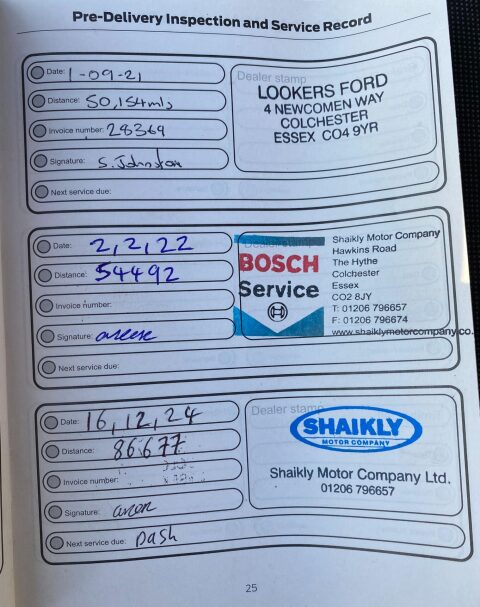 Pre-Delivery Inspection and Service Record
Date: 1-09-21
Distance: 50,154mls
Invoice number: 28369
Signature: S. Johnston
Next service due:
Dealer stamp
LOOKERS FORD
4 NEWCOMEN WAY
COLCHESTER
ESSEX CO4 9YR
Date: 2,2,22
Distance: 54492
Invoice number:
Signature:
Next service due:
Dealer stamp
BOSCH
Service
Shaikly Motor Company
Hawkins Road
The Hythe
Colchester
Essex
CO2 8JY
T: 01206 796657
F: 01206 796674
www.shaiklymotorcompany.co.
Date: 16,12,24
Distance: 86677
Invoice number:
Signature:
Next service due: Dash
Dealer stamp
SHAIKLY
MOTOR COMPANY
Shaikly Motor Company Ltd.
01206 796657
25